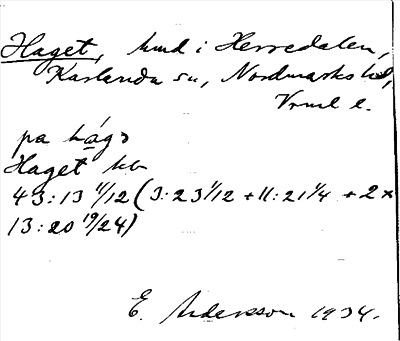 Haget, hmd i Herredalen,
Karlanda sn, Nordmarks hd,
Vrml l.
på hágə
Haget hb
43:13 11/12 (3:23 1/12 + 11:21 1/4 + 2 x
13:20 19/24)
E. Andersson 1934.